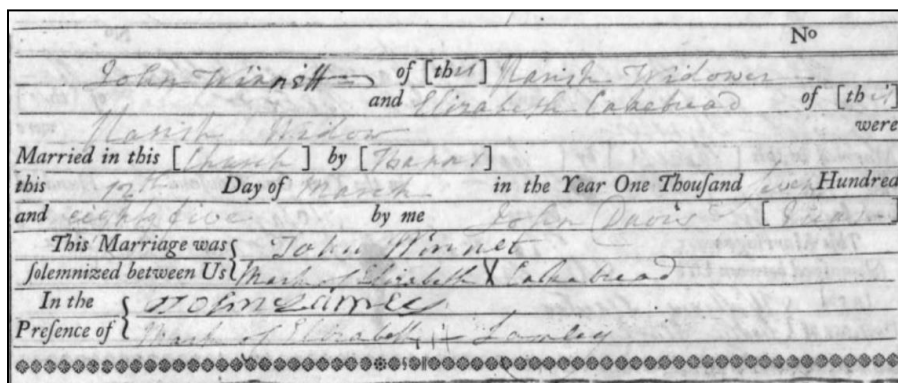 No
John Winnett of [this] Parish Widower
and Elizabeth Cakebread of [this]
Parish Widow were
Married in this [Church] by [Banns]
this Day of March in the Year One Thousand seven Hundred
and eighty five by me John Davis [
This Marriage was { John Winnet
solemnized between Us { Mark of Elizabeth X Cakebread
In the { John Lamley
Presence of { Mark of Elizabeth Lamley